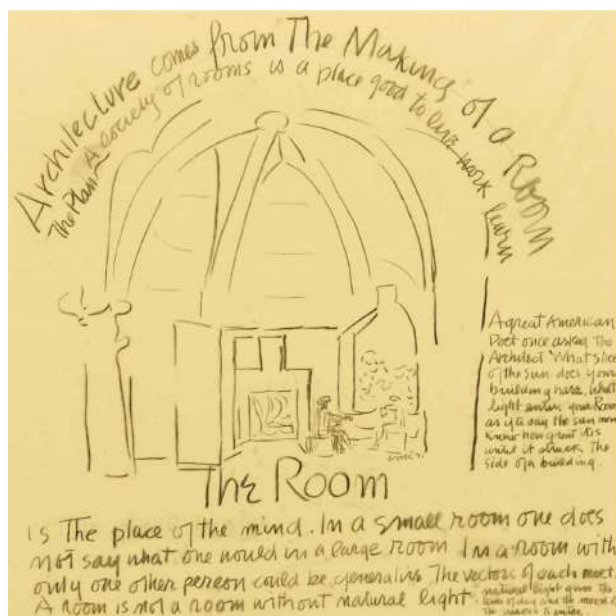 Architecture comes from The Making of a Room
The Plan A society of rooms is a place good to live work learn
A great American
Poet once asked The
Architect 'What slice
of the sun does your
building have, what
light enters your Room
as if to say the sun never
knew how great it is
until it struck The
side of a building.
The Room
is The place of the mind. In a small room one does
not say what one would in a large room In a room with
only one other person could be generative The vectors of each meet
A room is not a room without natural light.
natural light gives The
time of day and the mood of
The seasons to enter